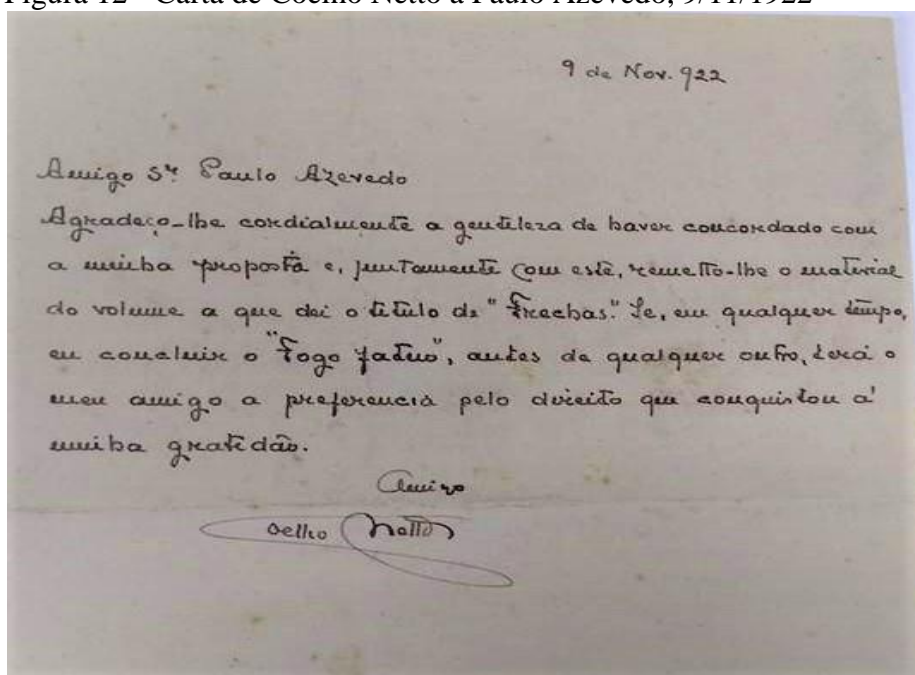 Figura 12 - Carta de Coelho Netto a Paulo Azevedo, 9/11/1922
9 de Nov. 922
Amigo Sr. Paulo Azevedo
Agradeço-lhe cordialmente a gentileza de haver concordado com
a minha proposta e, juntamente com este, remetto-lhe o material
do volume a que dei o titulo de "Frechas". Se, em qualquer tempo,
eu concluir o "Fogo fatuo", antes de qualquer outro, terá o
meu amigo a preferencia pelo direito que conquistou á
minha gratidão.
Amigo
Coelho Netto